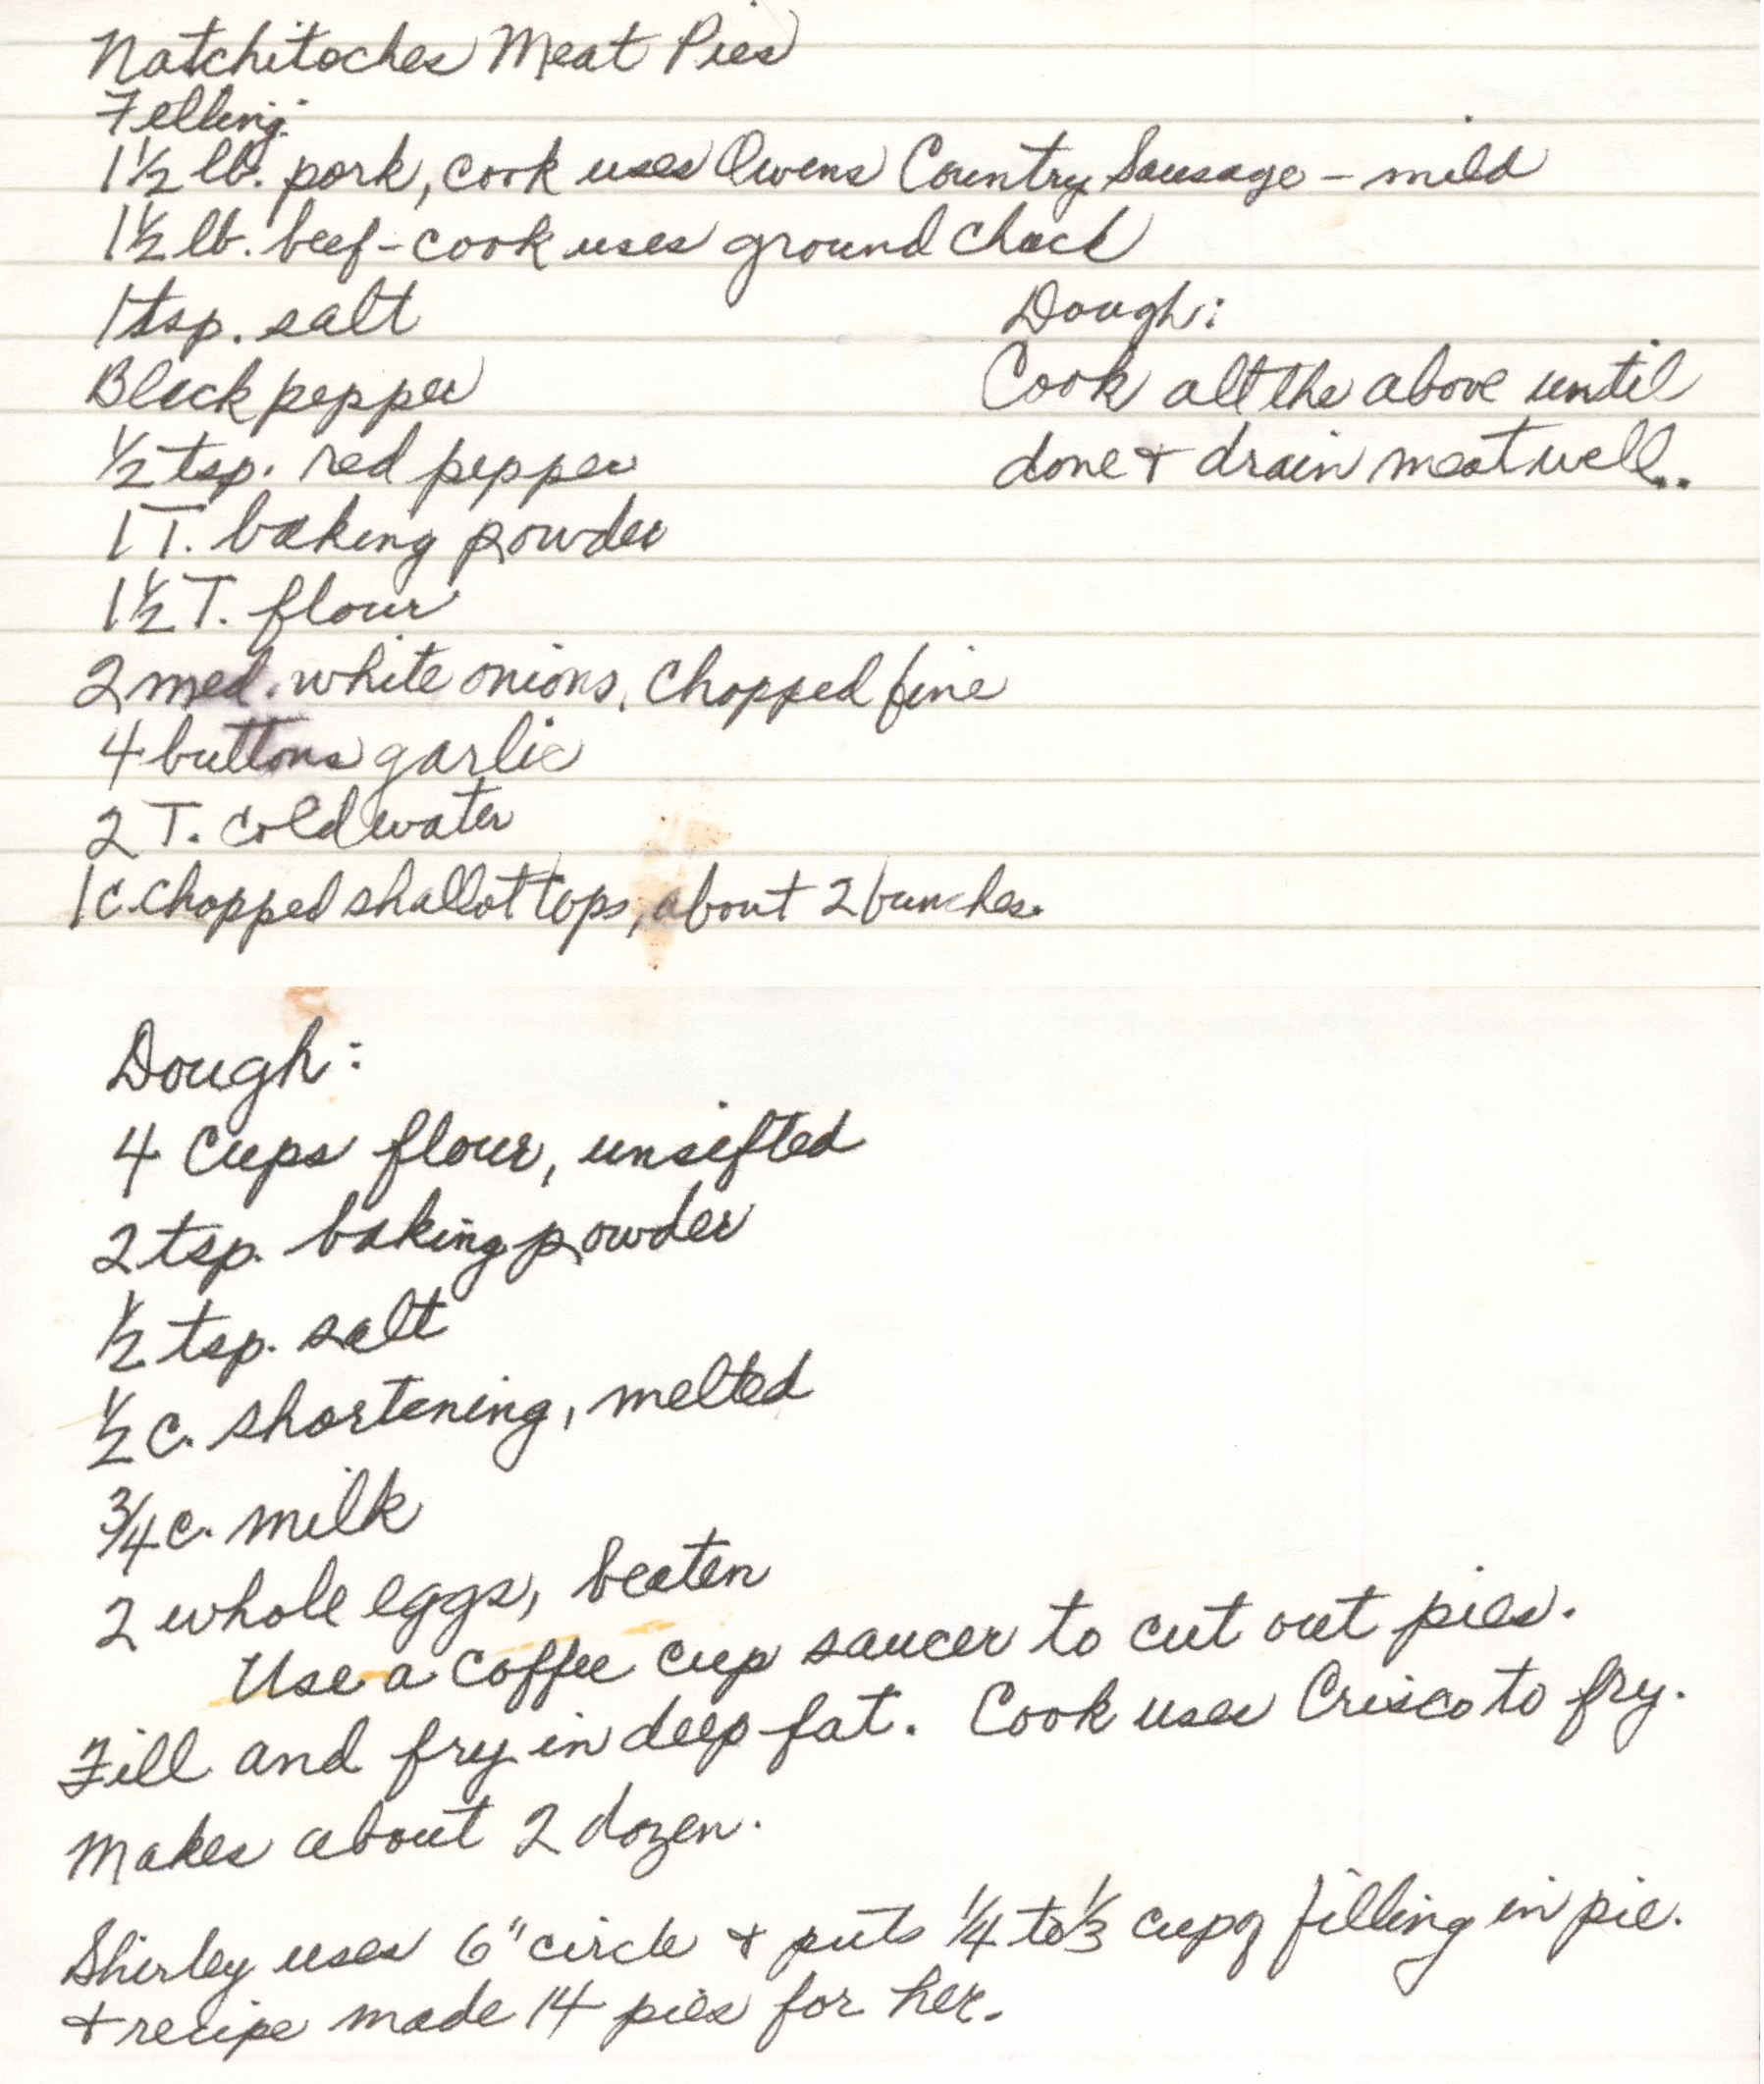 Natchitoches Meat Pies
Filling:
1 1/2 lb. pork, cook uses Owens Country Sausage - mild
1 1/2 lb. beef - cook uses ground chuck
1 tsp. salt
Black pepper
1/2 tsp. red pepper
1 T. baking powder
1 1/2 T. flour
2 med. white onions, chopped fine
4 buttons garlic
2 T. cold water
1 c. chopped shallot tops, about 2 bunches.
Dough:
Cook all the above until
done & drain meat well..
Dough:
4 cups flour, unsifted
2 tsp. baking powder
1/2 tsp. salt
1/2 c. shortening, melted
3/4 c. milk
2 whole eggs, beaten
Use a coffee cup saucer to cut out pies.
Fill and fry in deep fat. Cook uses Crisco to fry.
Makes about 2 dozen.
Shirley uses 6" circle & puts 1/4 to 1/3 cup of filling in pie.
& recipe made 14 pies for her.